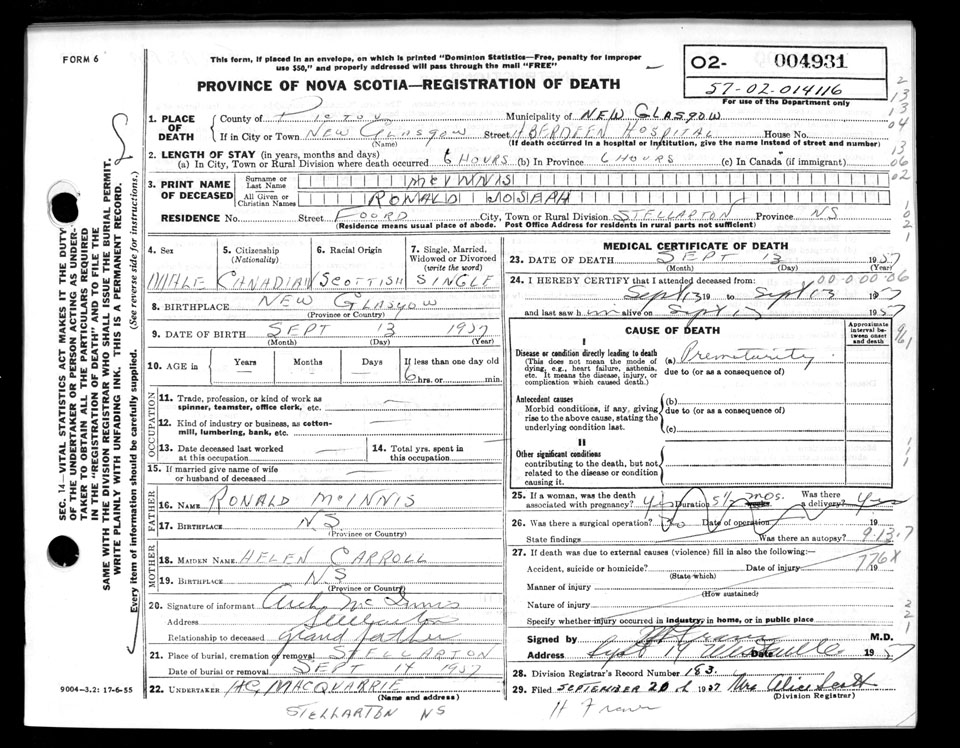 FORM 6
This form, if placed in an envelope, on which is printed "Dominion Statistics—Free, penalty for improper
use $50," and properly addressed will pass through the mail "FREE"
PROVINCE OF NOVA SCOTIA—REGISTRATION OF DEATH
O2- 004931
57-02-014116
For use of the Department only
1. PLACE OF DEATH
County of Pictou Municipality of NEW GLASGOW
If in City or Town NEW GLASGOW Street ABERDEEN HOSPITAL House No.
(Name) (If death occurred in a hospital or institution, give the name instead of street and number)
2. LENGTH OF STAY (in years, months and days)
(a) In City, Town or Rural Division where death occurred 6 HOURS (b) In Province 6 HOURS (c) In Canada (if immigrant)
3. PRINT NAME OF DECEASED
Surname or Last Name McINNIS
All Given or Christian Names RONALD JOSEPH
RESIDENCE No. Street FOORD City, Town or Rural Division STELLARTON Province NS
(Residence means usual place of abode. Post Office Address for residents in rural parts not sufficient)
4. Sex 5. Citizenship (Nationality) 6. Racial Origin 7. Single, Married, Widowed or Divorced (write the word)
MALE CANADIAN SCOTTISH SINGLE
8. BIRTHPLACE NEW GLASGOW
(Province or Country)
9. DATE OF BIRTH SEPT 13 1957
(Month) (Day) (Year)
10. AGE in Years Months Days If less than one day old
6 hrs. or min.
OCCUPATION
11. Trade, profession, or kind of work as
spinner, teamster, office clerk, etc.
12. Kind of industry or business, as cotton-
mill, lumbering, bank, etc.
13. Date deceased last worked at this occupation 14. Total yrs. spent in this occupation
15. If married give name of wife
or husband of deceased
FATHER
16. NAME RONALD McINNIS
17. BIRTHPLACE N.S
(Province or Country)
MOTHER
18. MAIDEN NAME HELEN CARROLL
19. BIRTHPLACE N.S
(Province or Country)
20. Signature of informant Arch McInnis
Address Stellarton
Relationship to deceased Grand father
21. Place of burial, cremation or removal STELLARTON
Date of burial or removal SEPT 14 1957
22. UNDERTAKER HG MACQUARRIE
(Name and address)
STELLARTON NS
9004-3.2: 17-6-55
MEDICAL CERTIFICATE OF DEATH
23. DATE OF DEATH SEPT 13 1957
(Month) (Day) (Year)
24. I HEREBY CERTIFY that I attended deceased from:
00-0-00-06
Sept 13 19 to Sept 13 1957
and last saw him alive on Sept 13 1957
CAUSE OF DEATH
Approximate interval between onset and death
I
Disease or condition directly leading to death
(This does not mean the mode of
dying, e.g., heart failure, asthenia,
etc. It means the disease, injury, or
complication which caused death.)
(a) Prematurity
due to (or as a consequence of)
Antecedent causes
Morbid conditions, if any, giving
rise to the above cause, stating the
underlying condition last.
(b)
due to (or as a consequence of)
(c)
II
Other significant conditions
contributing to the death, but not
related to the disease or condition
causing it.
25. If a woman, was the death
associated with pregnancy? yes Duration 5½ mos. Was there a delivery? yes
26. Was there a surgical operation? No Date of operation 19
State findings Was there an autopsy? 9-13-7
27. If death was due to external causes (violence) fill in also the following:—
776X
Accident, suicide or homicide? Date of injury 19
(State which)
Manner of injury
(How sustained)
Nature of injury
Specify whether injury occurred in industry, in home, or in public place
Signed by M.D.
Address Date Sept 14 1957
28. Division Registrar's Record Number 183.
29. Filed SEPTEMBER 20th 1957 Mrs Alice Scott
(Division Registrar)
H Fraser
SEC. 14—VITAL STATISTICS ACT MAKES IT THE DUTY
OF THE UNDERTAKER OR PERSON ACTING AS UNDER-
TAKER TO OBTAIN ALL THE PARTICULARS REQUIRED
IN THE "REGISTRATION OF DEATH" AND TO FILE THE
SAME WITH THE DIVISION REGISTRAR WHO SHALL ISSUE THE BURIAL PERMIT.
WRITE PLAINLY WITH UNFADING INK. THIS IS A PERMANENT RECORD.
Every item of information should be carefully supplied. (See reverse side for instructions.)